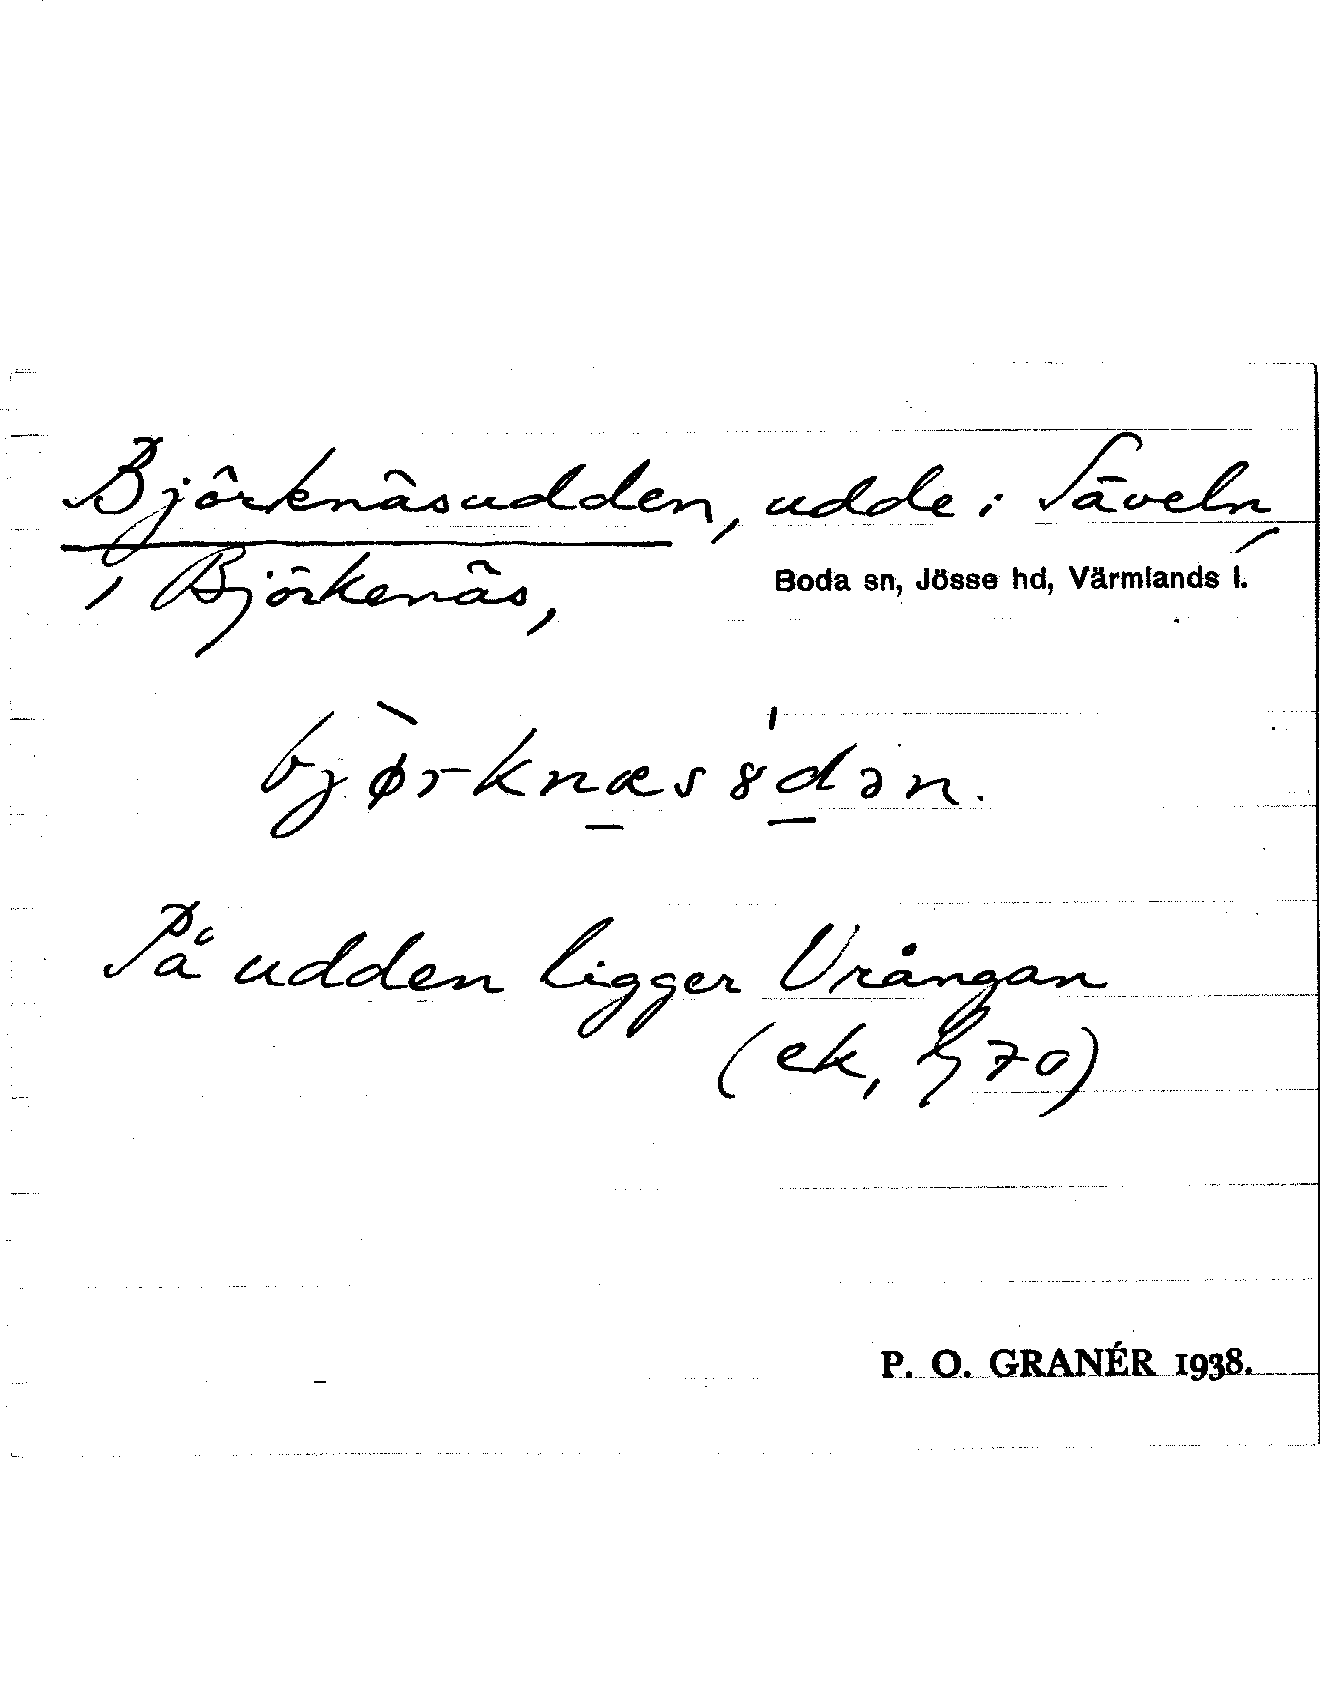 Björknäsudden, udde i Säveln,
i Björkenäs,
Boda sn, Jösse hd, Värmlands l.
bjørknæsȣdən.
På udden ligger Vrångan
(ek, h 70)
P. O. GRANÉR 1938.